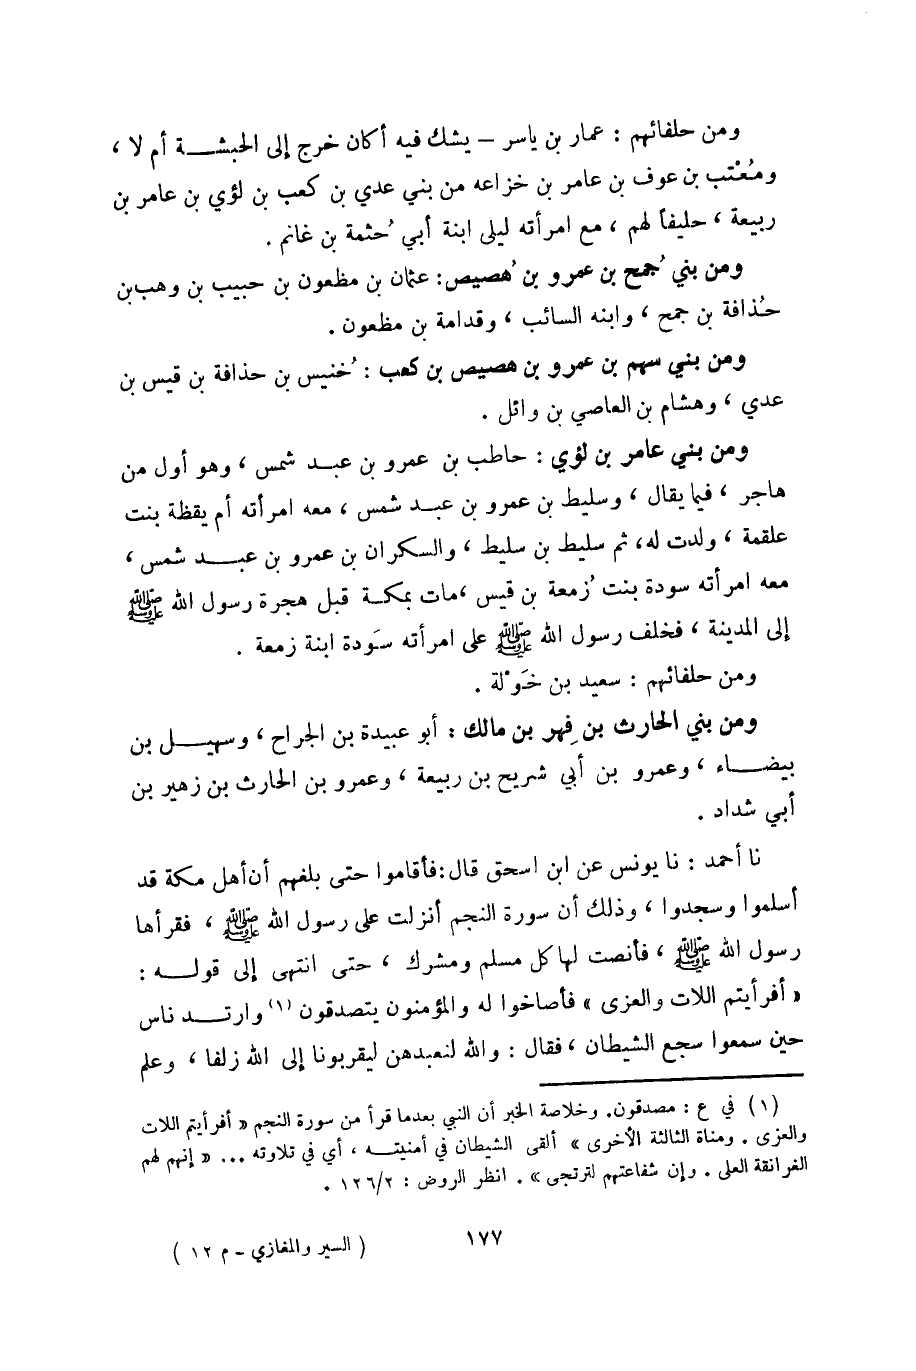 ومن حلفائهم : عمار بن ياسر – يشك فيه أكان خرج إلى الحبشة أم لا ،
ومُعْتب بن عوف بن عامر بن خزاعه من بني عدي بن كعب بن لؤي بن عامر بن
ربيعة ، حليفاً لهم ، مع امرأته ليلى ابنة أبي حُثمة بن غانم .
ومن بني جُمح بن عمرو بن هُصيص : عثمان بن مظعون بن حبيب بن وهب بن
حُذافة بن جمح ، وابنه السائب ، وقدامة بن مظعون .
ومن بني سهم بن عمرو بن هصيص بن كعب : خُنيس بن حذافة بن قيس بن
عدي ، وهشام بن العاصي بن وائل .
ومن بني عامر بن لؤي : حاطب بن عمرو بن عبد شمس ، وهو أول من
هاجر ، فيما يقال ، وسليط بن عمرو بن عبد شمس ، معه امرأته أم يقظة بنت
علقمة ، ولدت له، ثم سليط بن سليط ، والسكران بن عمرو بن عبد شمس ،
معه امرأته سودة بنت زُمعة بن قيس ،مات بمكة قبل هجرة رسول الله ﷺ
إلى المدينة ، فخلف رسول الله ﷺ على امرأته سَودة ابنة زمعة .
ومن حلفائهم : سعيد بن خَوْلة .
ومن بني الحارث بن فِهر بن مالك : أبو عبيدة بن الجراح ، وسهيل بن
بيضاء ، وعمرو بن أبي شريح بن ربيعة ، وعمرو بن الحارث بن زهير بن
أبي شداد .
نا أحمد : نا يونس عن ابن اسحق قال:فأقاموا حتى بلغهم أن أهل مكة قد
أسلموا وسجدوا ، وذلك أن سورة النجم أنزلت على رسول الله ﷺ ، فقرأها
رسول الله ﷺ ، فأنصت لها كل مسلم ومشرك ، حتى انتهى إلى قوله :
« أفرأيتم اللات والعزى » فأصاخوا له والمؤمنون يتصدقون (١) وارتد ناس
حين سمعوا سجع الشيطان ، فقال : والله لنعبدهن ليقربونا إلى الله زلفا ، وعلم
(١) في ع : مصدقون. وخلاصة الخبر أن النبي بعدما قرأ من سورة النجم « أفرأيتم اللات
والعزى . ومناة الثالثة الأخرى » ألقى الشيطان في أمنيته ، أي في تلاوته ... « إنهم لهم
الغرانقة العلى . وإن شفاعتهم لترتجى » . انظر الروض : ١٢٦/٢ .
١٧٧
( السير والمغازي - م ١٢ )